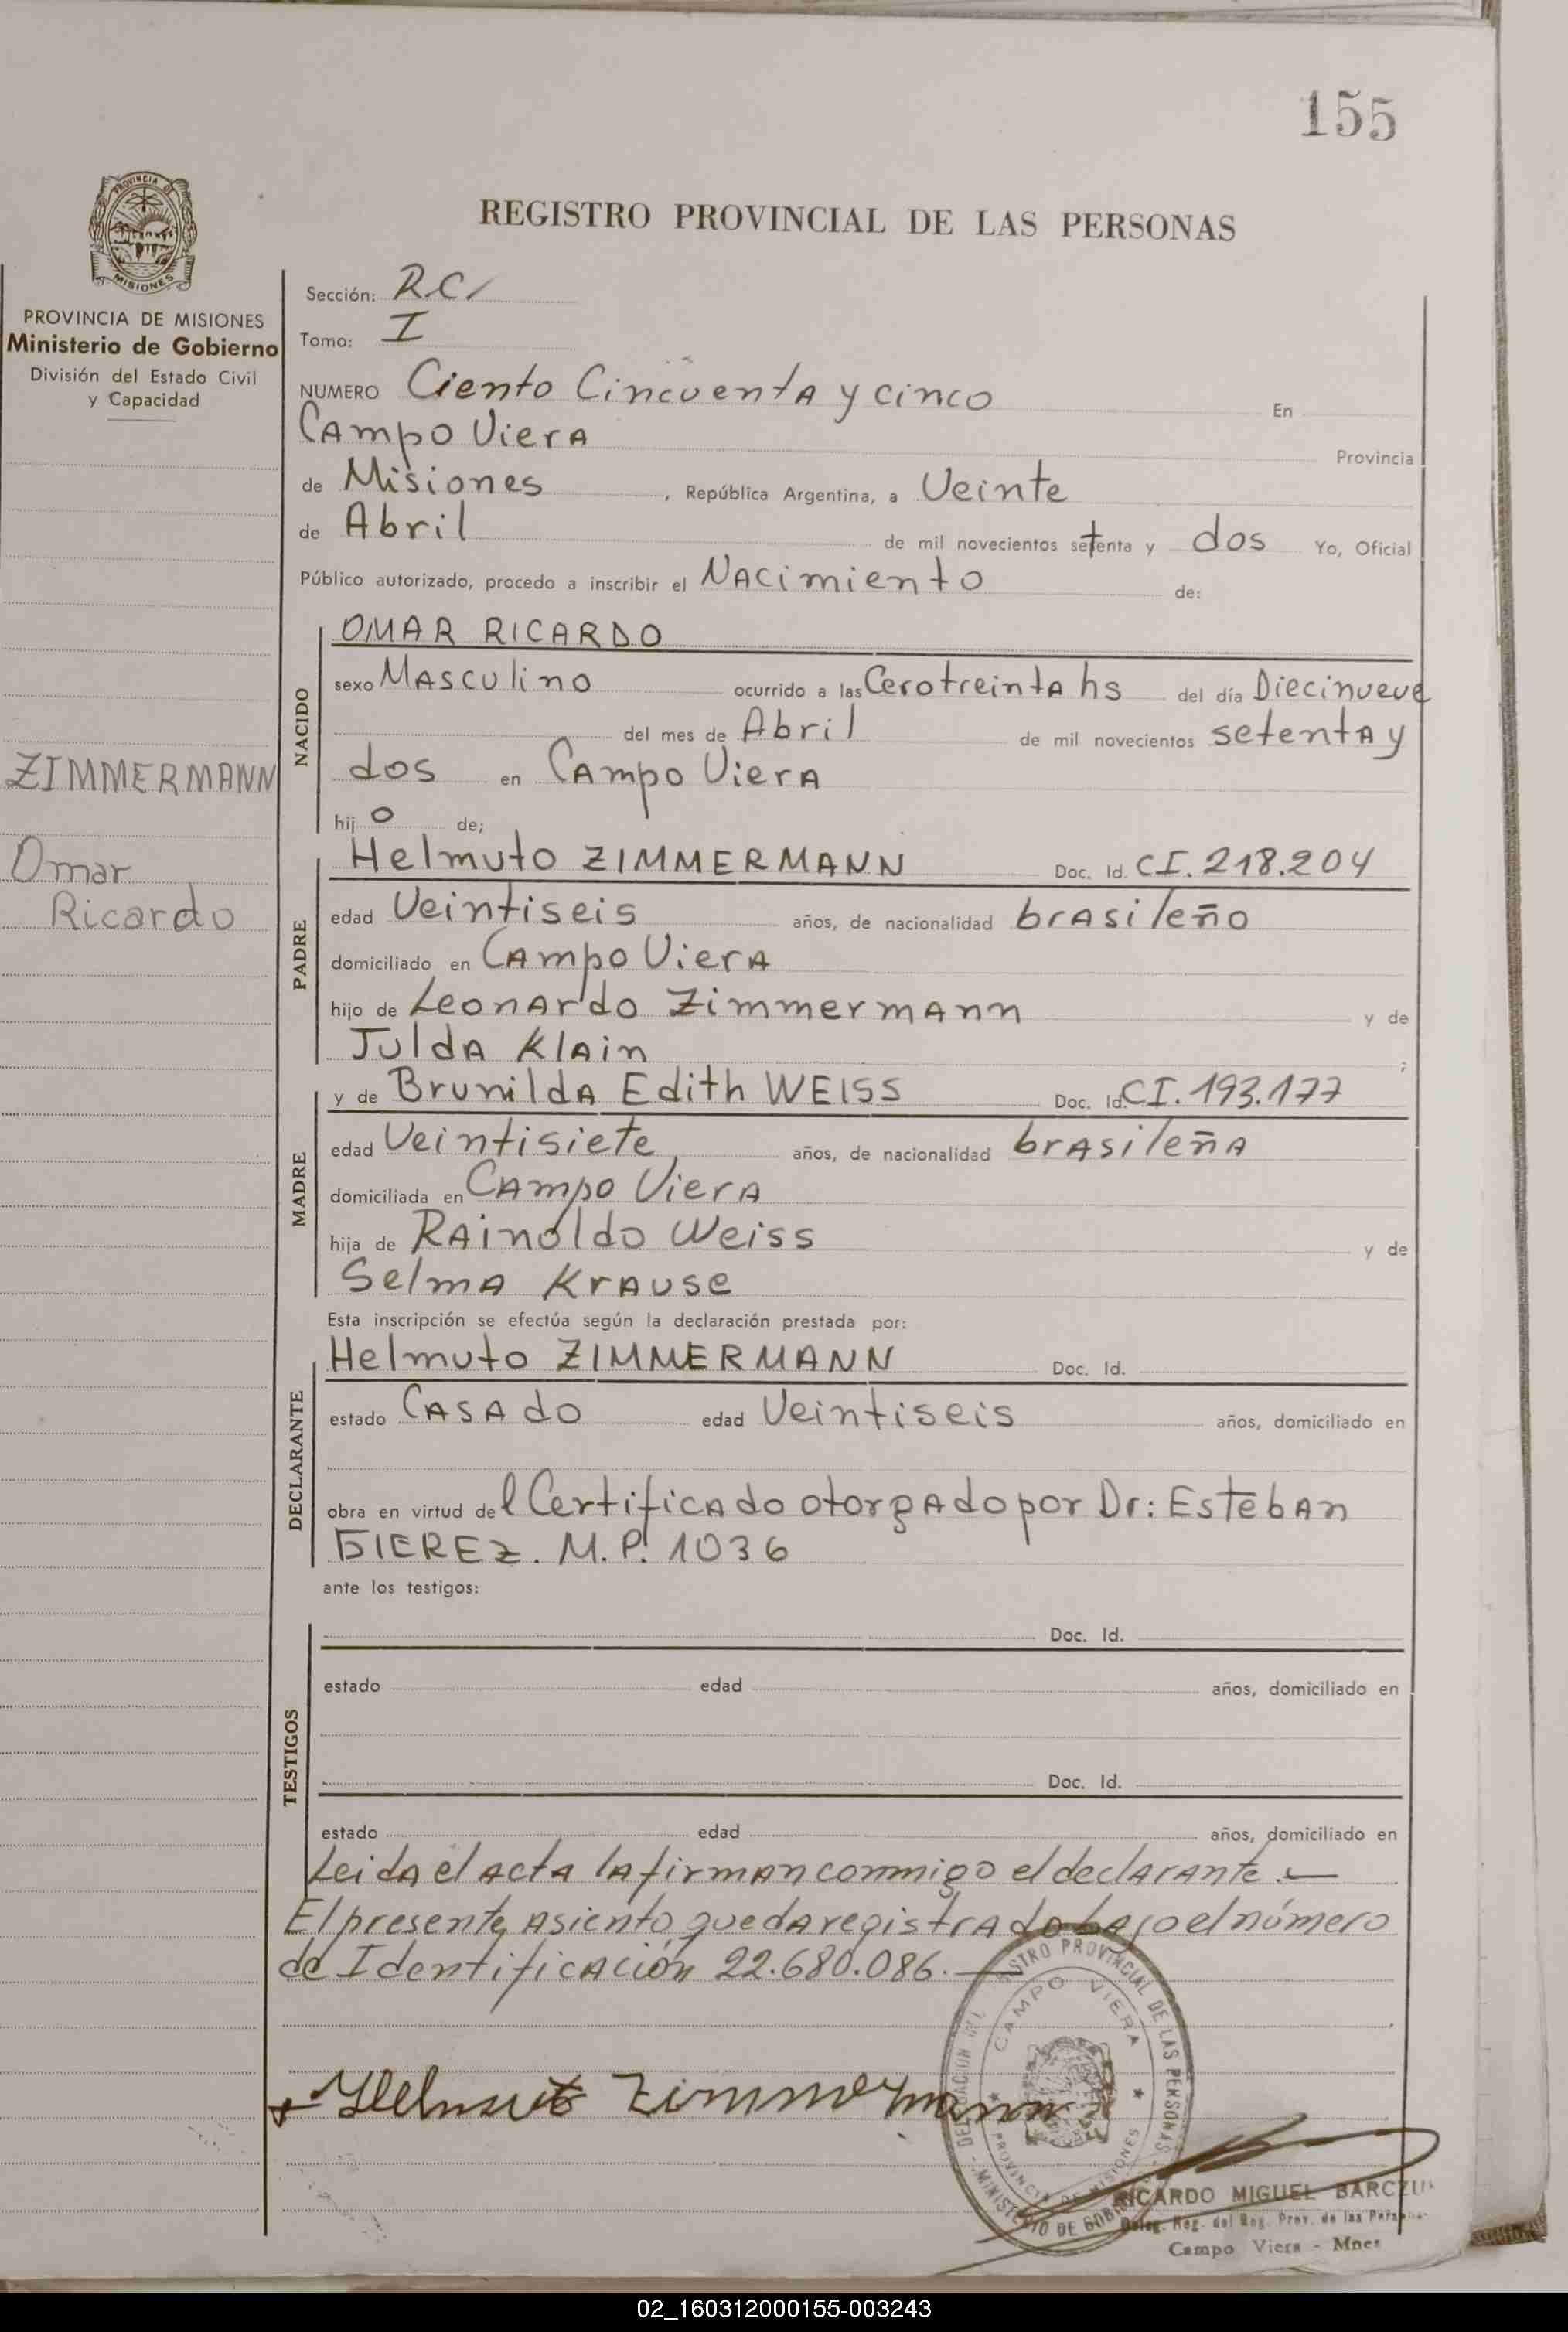 155
PROVINCIA DE
MISIONES
REGISTRO PROVINCIAL DE LAS PERSONAS
PROVINCIA DE MISIONES
Ministerio de Gobierno
División del Estado Civil
y Capacidad
ZIMMERMANN
Omar
Ricardo
Sección: R.C/
Tomo: I
NUMERO Ciento Cincuenta y cinco En
Campo Viera Provincia
de Misiones, República Argentina, a Veinte
de Abril de mil novecientos setenta y dos Yo, Oficial
Público autorizado, procedo a inscribir el Nacimiento de:
NACIDO
OMAR RICARDO
sexo Masculino ocurrido a las Cerotreinta hs del día Diecinueve
del mes de Abril de mil novecientos setenta y
dos en Campo Viera
hijo de;
PADRE
Helmuto ZIMMERMANN Doc. Id. CI. 218.204
edad Veintiseis años, de nacionalidad brasileño
domiciliado en Campo Viera
hijo de Leonardo Zimmermann y de
Julda Klain ;
MADRE
y de Brunilda Edith WEISS Doc. Id. CI. 193.177
edad Veintisiete años, de nacionalidad brasileña
domiciliada en Campo Viera
hija de Rainoldo Weiss y de
Selma Krause
Esta inscripción se efectúa según la declaración prestada por:
DECLARANTE
Helmuto ZIMMERMANN Doc. Id.
estado Casado edad Veintiseis años, domiciliado en
obra en virtud del Certificado otorgado por Dr: Esteban
GIEREZ. M.P. 1036
ante los testigos:
TESTIGOS
Doc. Id.
estado edad años, domiciliado en
Doc. Id.
estado edad años, domiciliado en
Leida el acta la firman conmigo el declarante.—
El presente asiento queda registrado bajo el número
de Identificación 22.680.086.—
Helmut Zimmermann
REGISTRO PROVINCIAL DE LAS PERSONAS
CAMPO VIERA
PROVINCIA DE MISIONES
MINISTERIO DE GOBIERNO
RICARDO MIGUEL
Deleg. Reg. del Reg. Prov. de las
Campo Viera - Mnes
02_160312000155-003243